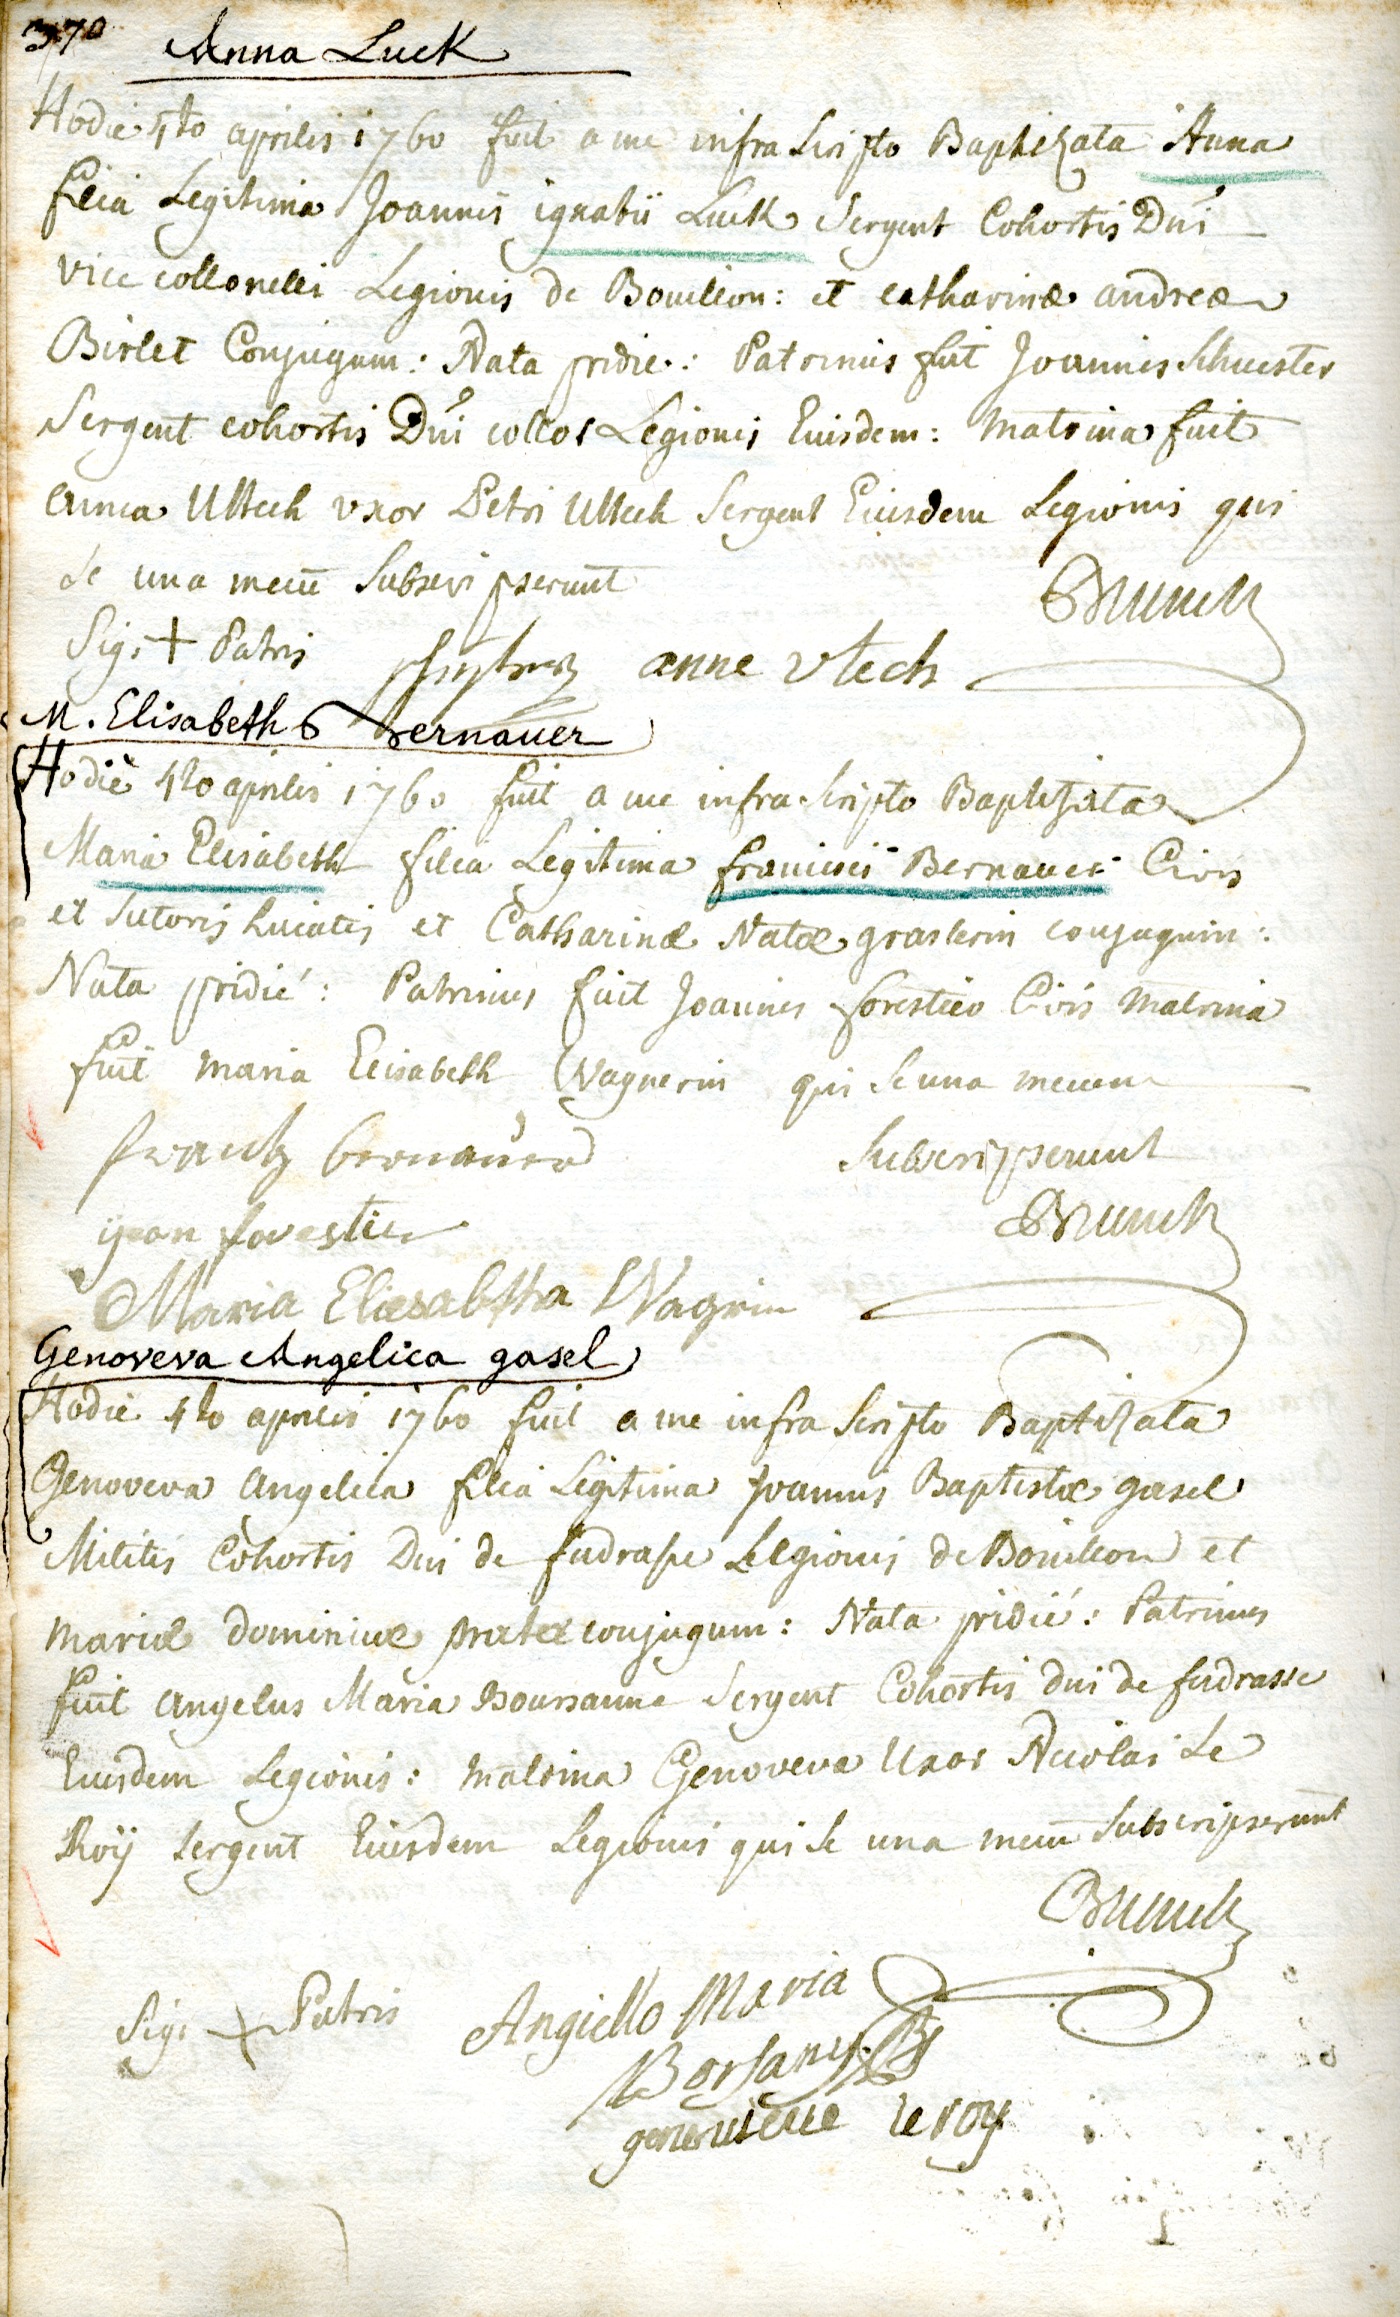 370 Anna Luck
Hodie 4to aprilis 1760 fuit a me infra Scripto Baptizata Anna
filia Legitima Joannis ignatii Luck Sergent Cohortis Dni
vice collonelli Legionis de Bouillon: et catharinæ andreæ
Birlet Conjugum: Nata pridie: Patrinus fuit Joannes Schuester
Sergent cohortis Dni collos Legionis Eiusdem: Matrina fuit
anna Uttech uxor Petri Uttech Sergent Eiusdem Legionis qui
se una mecū Subscripserunt
Brunck
Sig: + Patris anne Vtech
M. Elisabeth Bernauer
Hodie 4to aprilis 1760 fuit a me infra Scripto Baptizata
Maria Elisabeth filia Legitima francisci Bernauer Civis
et Sutoris huiatis et Catharinæ Natæ grasserin conjugum:
Nata pridié: Patrinus fuit Joannes forestier Civis Matrina
fuit maria Elisabeth Wagnerin qui se una mecum
Subscripserunt
frantz bernauer
Brunck
jean forestier
Maria Eliesabetha Wagrin
Genoveva Angelica gasel
Hodie 4to aprilis 1760 fuit a me infra Scripto Baptizata
Genoveva Angelica filia Legitima Joannis Baptistæ gasel
Militis Cohortis Dni de fudrasse Legionis de Bouillon et
mariæ dominicæ conjugum: Nata pridié: Patrinus
fuit Angelus Maria Boursanne Sergent Cohortis dni de fudrasse
Eiusdem Legionis: matrina Genoveva Uxor Nicolai Le
Roÿ Sergent Eiusdem Legionis qui se una mecū Subscripserunt
Brunck
Sig: + Patris Angiello Maria
Borsany
genevieve le roy